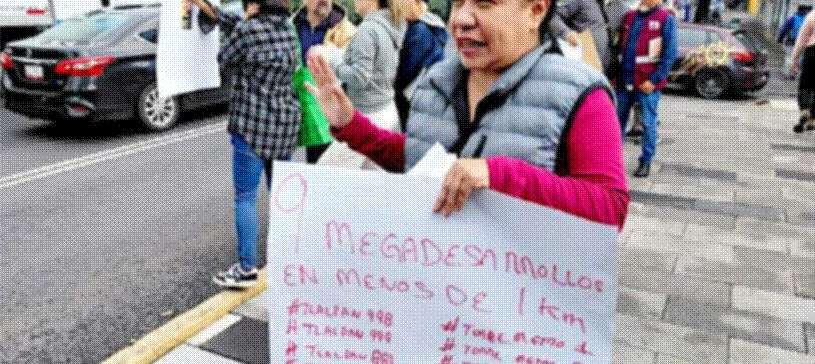 9 MEGADESARROLLOS
EN MENOS DE 1 Km
#TLALPAN 998
#TLALPAN 999
#TLALPAN
#TORRE
#TORRE